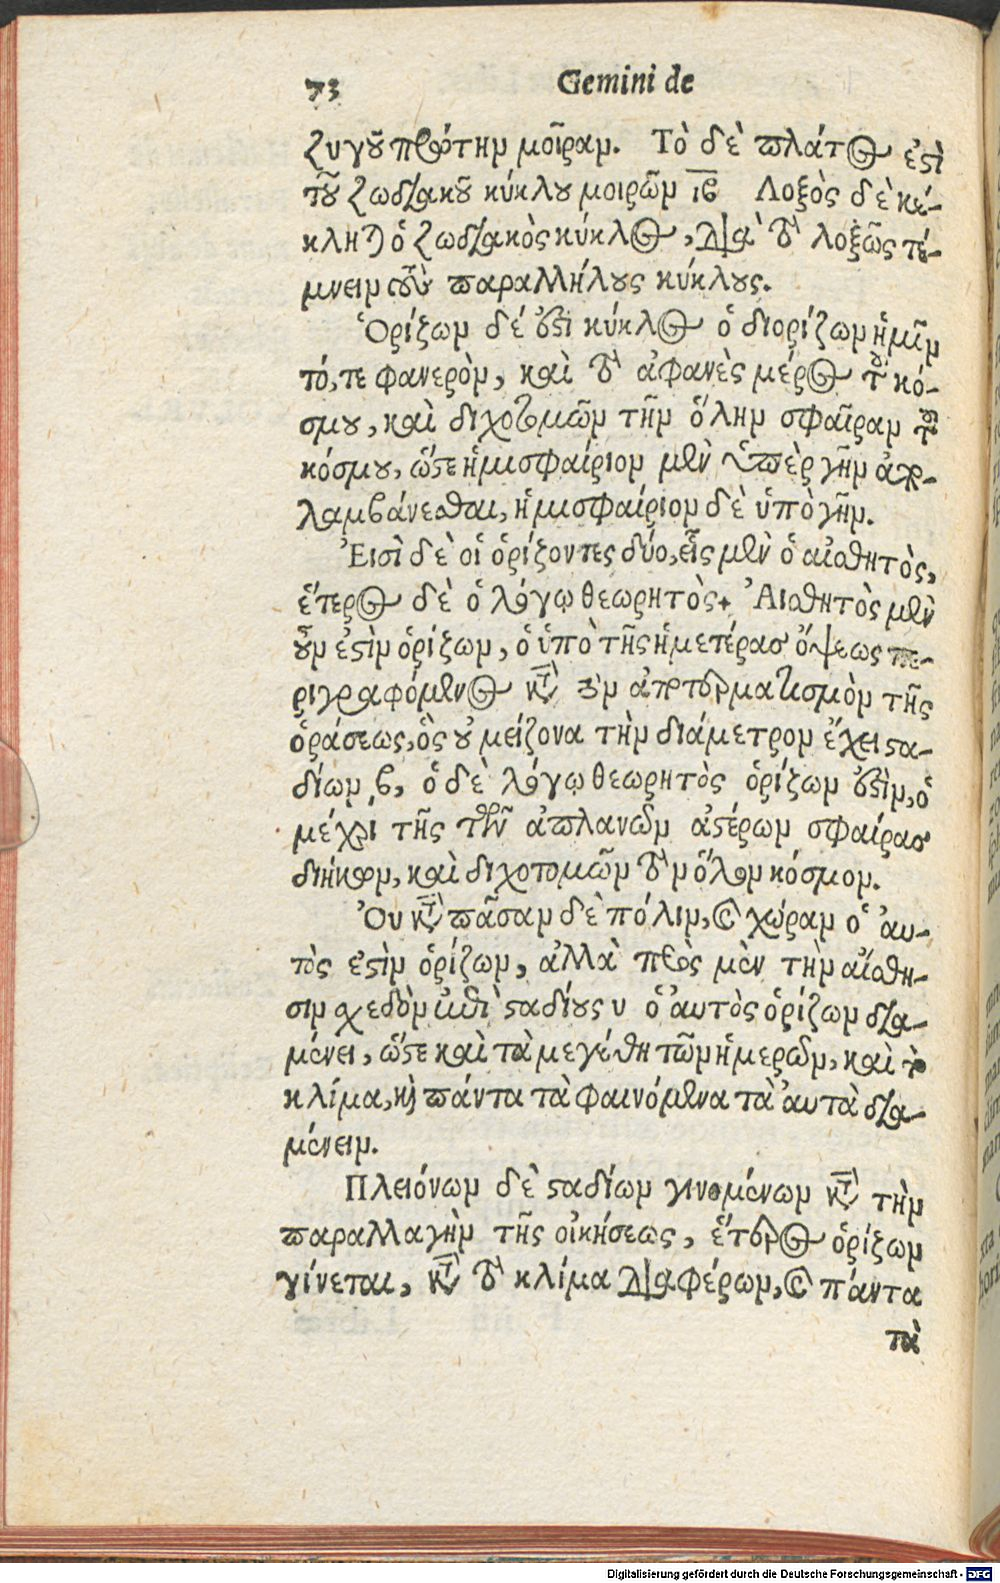 73 Gemini de
ζυγοῦ πρώτην μοῖραν. Τὸ δὲ πλάτος ἐστὶ
τοῦ ζωδιακοῦ κύκλου μοιρῶν ιβ Λοξὸς δὲ κέ-
κληται ὁ ζωδιακὸς κύκλος, διὰ τὸ λοξῶς τέ-
μνειν τοὺς παραλλήλους κύκλους.
Ὁρίζων δέ ἐστι κύκλος ὁ διορίζων ἡμῖν
τό, τε φανερὸν, καὶ τὸ ἀφανὲς μέρος τοῦ κό-
σμου, καὶ διχοτομῶν τὴν ὅλην σφαῖραν τοῦ
κόσμου, ὥστε ἡμισφαίριον μὲν ὑπὲρ γῆν ἀπο-
λαμβάνεσθαι, ἡμισφαίριον δὲ ὑπὸ γῆν.
Ἐισὶ δὲ οἱ ὁρίζοντες δύο, εἷς μὲν ὁ αἰσθητὸς,
ἕτερος δὲ ὁ λόγῳ θεωρητὸς. Ἀισθητὸς μὲν
οὖν ἐστὶν ὁρίζων, ὁ ὑπὸ τῆς ἡμετέρας ὄψεως πε-
ριγραφόμενος κατὰ τὸν ἀποτερματισμὸν τῆς
ὁράσεως, ὃς οὐ μείζονα τὴν διάμετρον ἔχει στα-
δίων β, ὁ δὲ λόγῳ θεωρητὸς ὁρίζων ἐστὶν, ὁ
μέχρι τῆς τῶν ἀπλανῶν ἀστέρων σφαίρας
διήκων, καὶ διχοτομῶν τὸν ὅλον κόσμον.
Ὀυ κατὰ πᾶσαν δὲ πόλιν, καὶ χώραν ὁ ἀυ-
τὸς ἐστὶν ὁρίζων, ἀλλὰ πρὸς μὲν τὴν αἴσθη-
σιν σχεδὸν ἐπὶ σταδίους υ ὁ ἀυτὸς ὁρίζων δια-
μένει, ὥστε καὶ τὰ μεγέθη τῶν ἡμερῶν, καὶ τὸ
κλίμα, καὶ πάντα τὰ φαινόμενα τὰ ἀυτὰ δια-
μένειν.
Πλειόνων δὲ σταδίων γινομένων κατὰ τὴν
παραλλαγὴν τῆς οἰκήσεως, ἕτερος ὁρίζων
γίνεται, κατὰ τὸ κλίμα διαφέρων, καὶ πάντα
τὰ
Digitalisierung gefördert durch die Deutsche Forschungsgemeinschaft - DFG